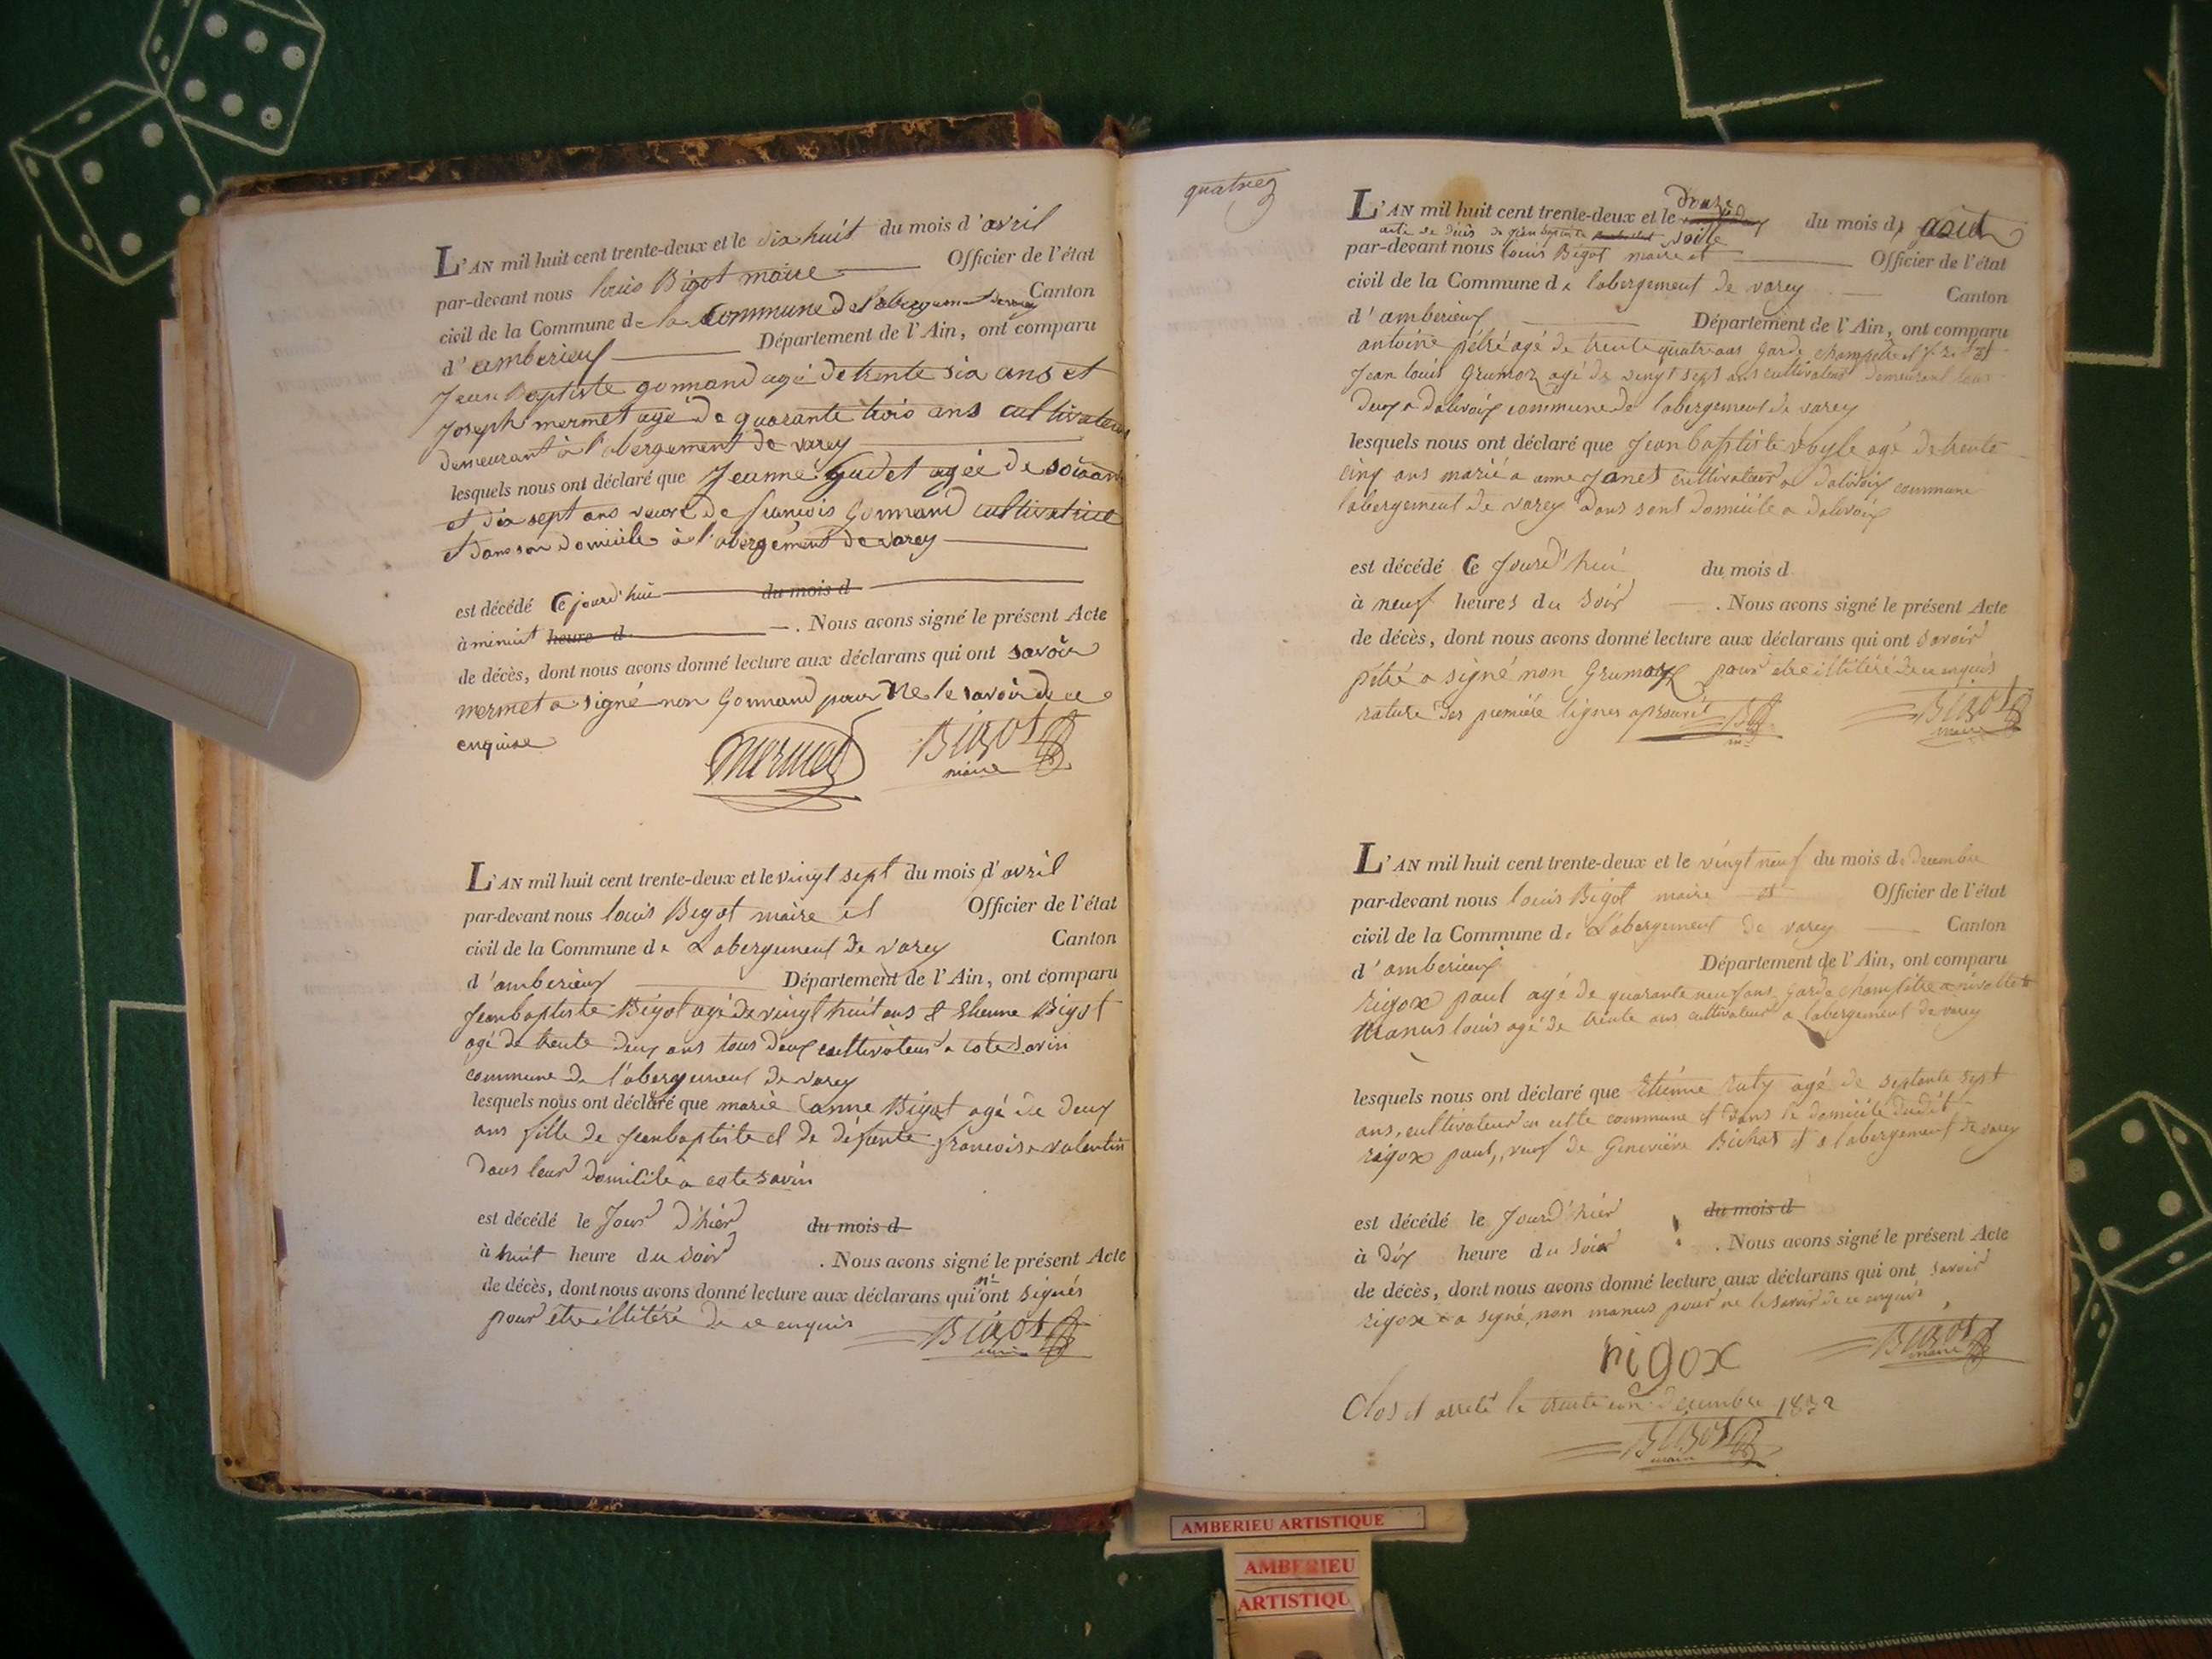 L'AN mil huit cent trente-deux et le dix huit du mois d'avril
par-devant nous louis Bigot maire Officier de l'état
civil de la Commune de la commune de labergement de varey Canton
d'amberieux Département de l'Ain, ont comparu
Jean Baptiste gonnand agé de trente six ans et
Joseph mermet agé de quarante trois ans cultivateurs
demeurant à l'abergement de varey
lesquels nous ont déclaré que Jeanne Gudet agée de soixante
et dix sept ans veuve de francois Gonnand cultivatrice
et dans son domicile à l'abergement de varey
est décédé Ce jourd'hui du mois d
à minuit heure d . Nous avons signé le présent Acte
de décès, dont nous avons donné lecture aux déclarans qui ont savoir
mermet a signé non Gonnand pour ne le savoir de ce
enquise
mermet Bigot
maire
L'AN mil huit cent trente-deux et le vingt sept du mois d'avril
par-devant nous louis Bigot maire et Officier de l'état
civil de la Commune de Labergement de varey Canton
d'amberieux Département de l'Ain, ont comparu
Jeanbaptiste Bigot agé de vingt huit ans & Etienne Bigot
agé de trente deux ans tous deux cultivateur a cote savin
commune de l'abergement de varey
lesquels nous ont déclaré que marie anne Bigot agé de deux
ans fille de Jeanbaptiste et de défunte francoise valentin
dans leur domicile a cote savin
est décédé le Jour d'hier du mois d
à huit heure du soir . Nous avons signé le présent Acte
de décès, dont nous avons donné lecture aux déclarans qui n'ont signés
pour être illitéré de ce enquis Bigot
maire
quatre
L'AN mil huit cent trente-deux et le douze du mois d août
acte de décès de jean baptiste
par-devant nous louis Bigot maire et Officier de l'état
civil de la Commune de labergement de varey Canton
d'amberieux Département de l'Ain, ont comparu
antoine pétré agé de trente quatre ans garde champetre et
Jean louis Grumoz agé de vingt sept ans cultivateur demeurant tous
deux a dalivoix commune de labergement de varey
lesquels nous ont déclaré que Jean baptiste agé de trente
cinq ans marié a anne Janet cultivateur a dalivoix commune
labergement de varey dans sont domicile a dalivoix
est décédé Ce Jourd'hui du mois d
à neuf heures du soir . Nous avons signé le présent Acte
de décès, dont nous avons donné lecture aux déclarans qui ont savoir
pétré a signé non Grumoz pour etre illitéré de ce enquis
rature des premiére lignes aprouvé Bigot
maire
L'AN mil huit cent trente-deux et le vingt neuf du mois de decembre
par-devant nous louis Bigot maire et Officier de l'état
civil de la Commune de Labergement de varey Canton
d'amberieux Département de l'Ain, ont comparu
rigox paul agé de quarante neuf ans garde champêtre
manus louis agé de trente ans cultivateur a labergement de varey
lesquels nous ont déclaré que Etienne ruty agé de septante sept
ans, cultivateur en cette commune et dans le domicile dudit
rigox paul, veuf de Geneviève Bichat et a labergement de varey
est décédé le Jourd'hier du mois d
à dix heure du soir . Nous avons signé le présent Acte
de décès, dont nous avons donné lecture aux déclarans qui ont savoir
rigox a signé, non manus pour ne le savoir de ce enquis
rigox Bigot
maire
Clos et arreté le trente un decembre 1832
Bigot
maire
AMBERIEU ARTISTIQUE
AMBERIEU
ARTISTIQU